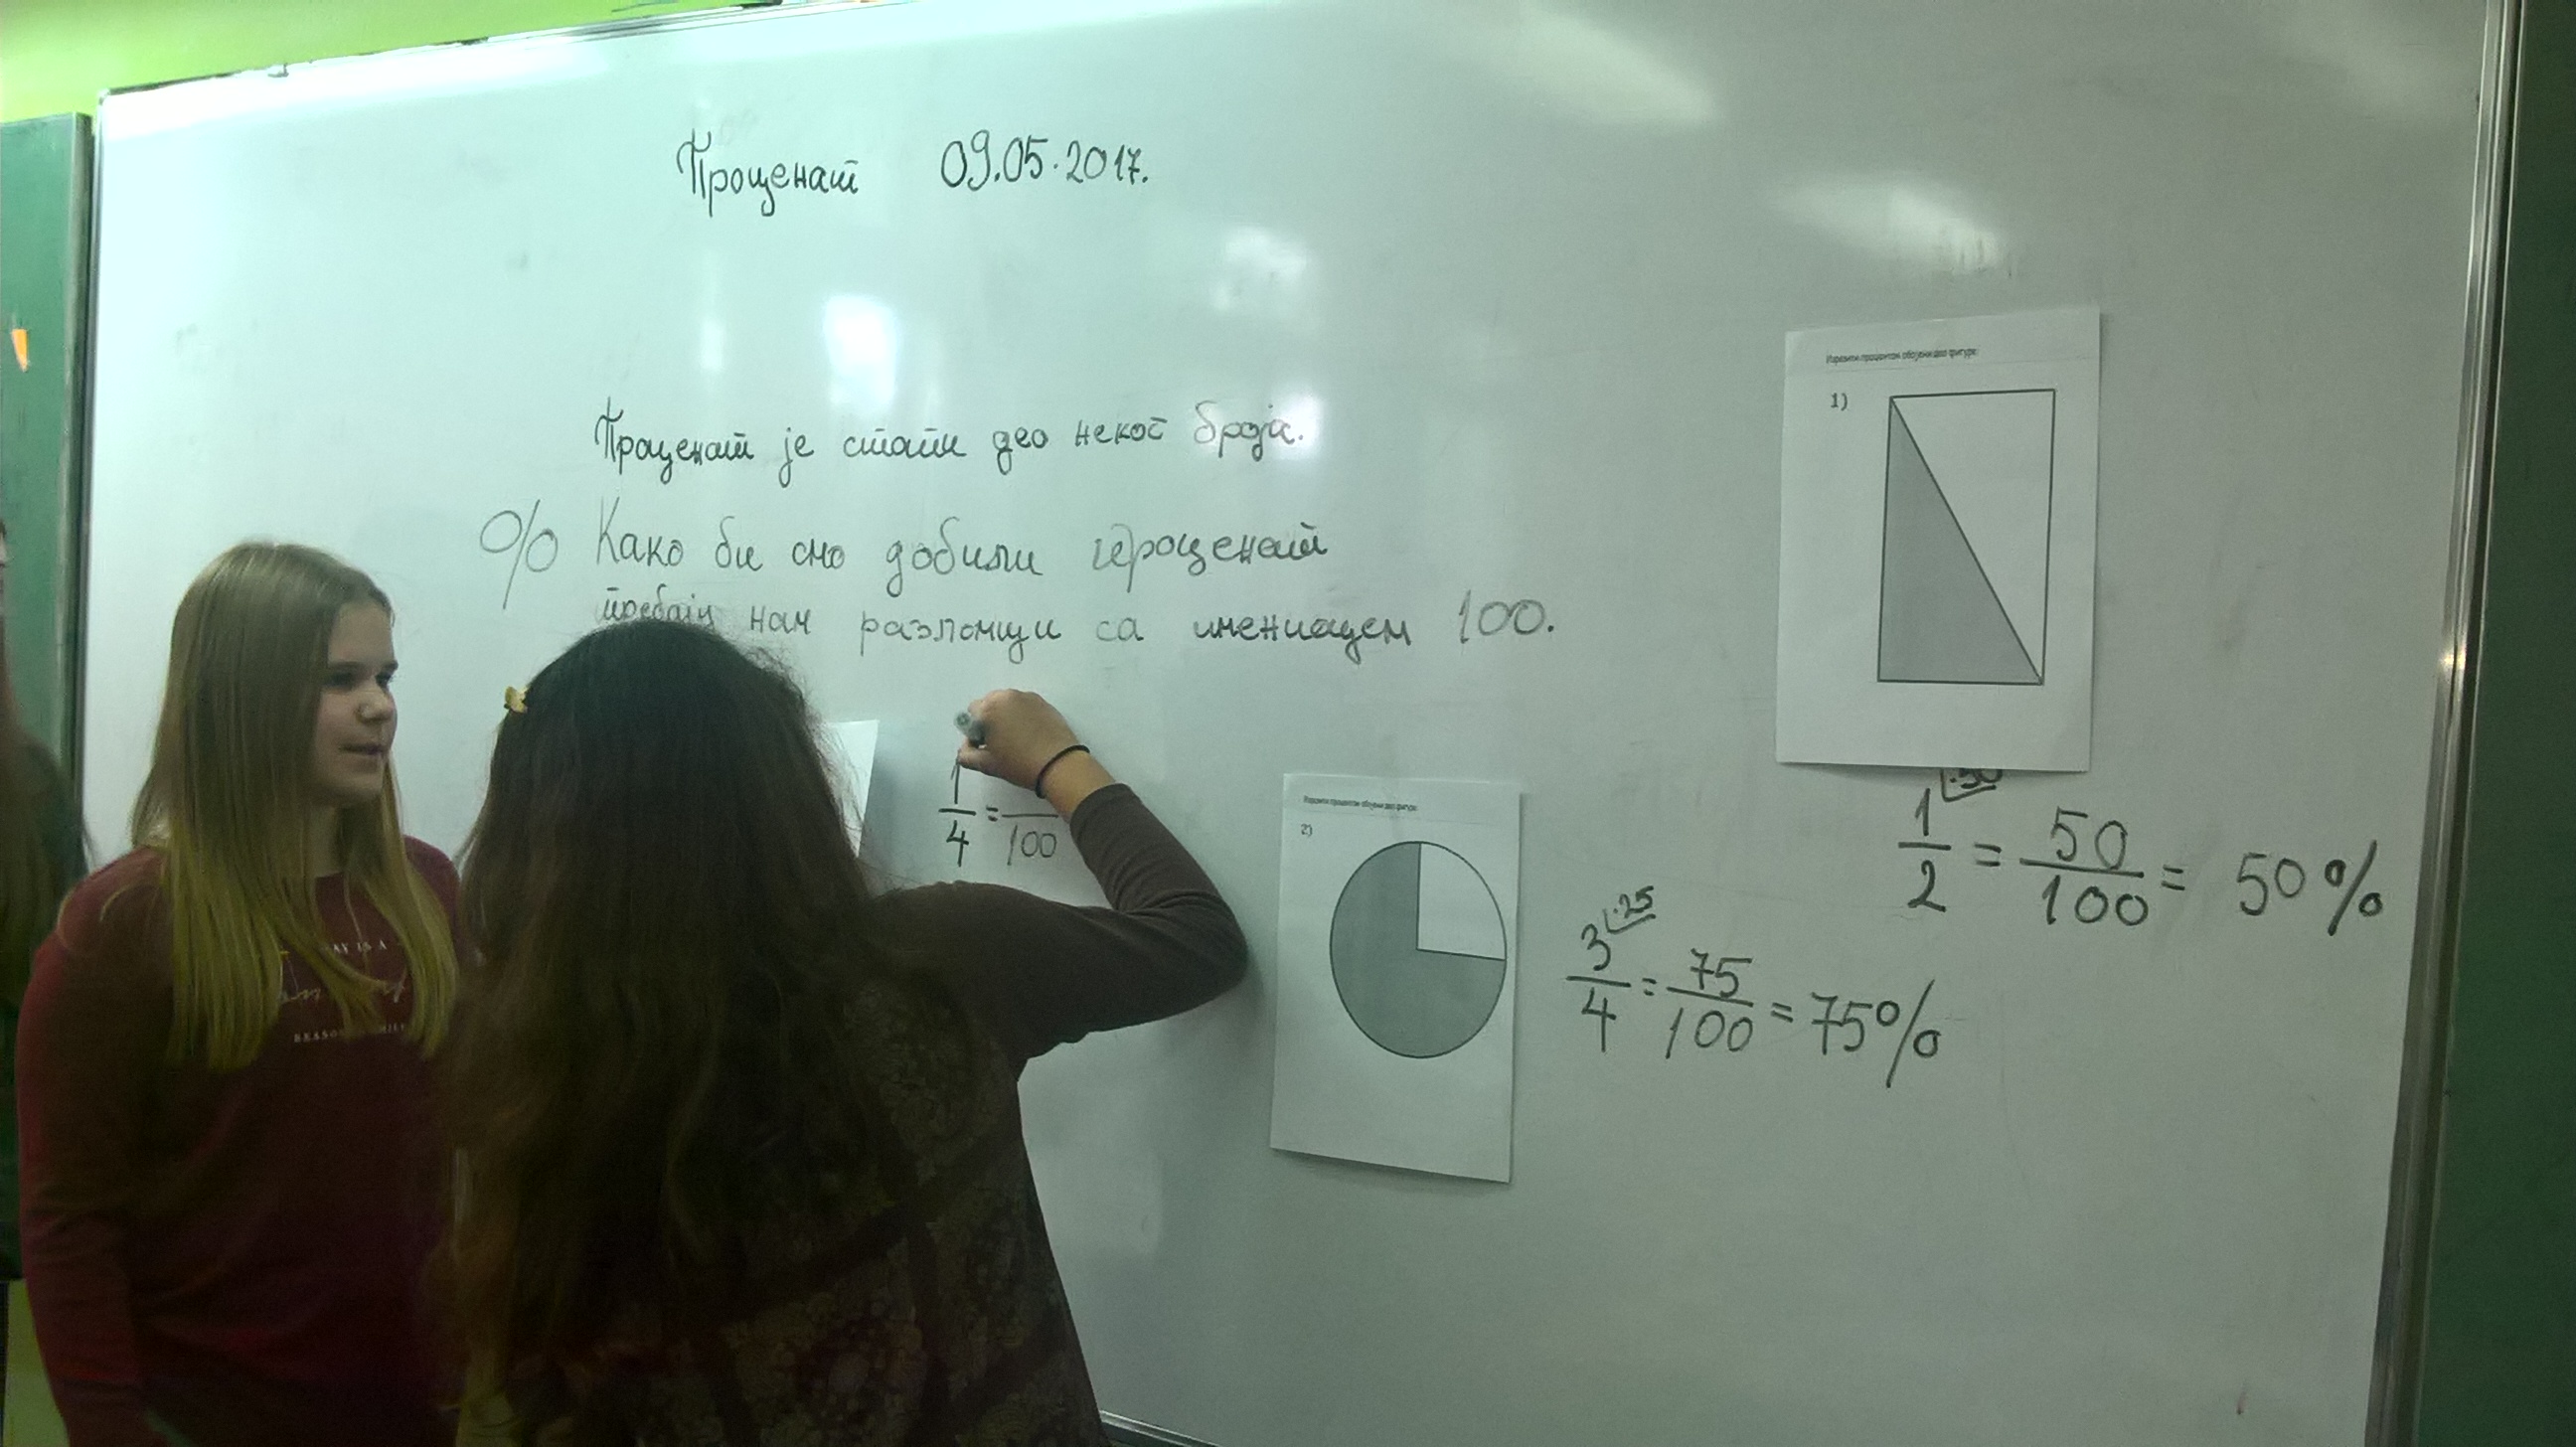 Проценат 09.05.2017.
Проценат је стоти део неког броја.
% Како би смо добили проценат
требају нам разломци са имениоцем 100.
Изразити процентом обојени део фигуре:
1)
1/2 = 50/100 = 50%
Изразити процентом обојени део фигуре:
2)
3/4 = 75/100 = 75%
·25
·50
1/4 = /100